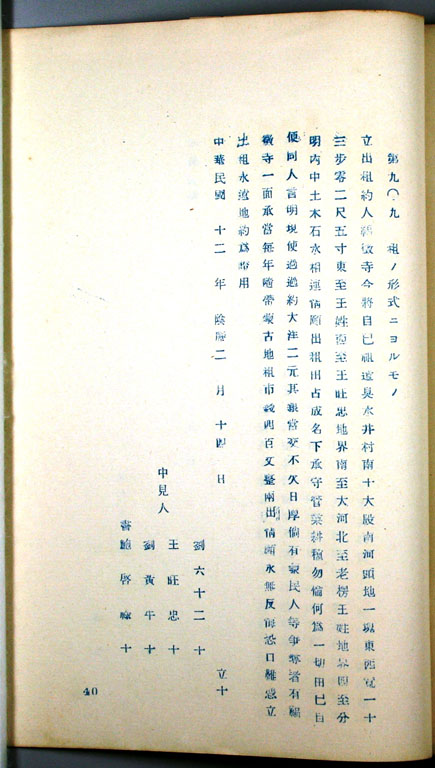 第九〇・九 租ノ形式ニヨルモノ
立出租約人 寺今將自己祖遺臭水井村南十大股南河頭地一塊東西寬一十
三步零二尺五寸東至王姓西至王旺忠地界南至大河北至老楞王姓地界四至分
明內中土木石水相連情願出租田占成名下承守管業耕種勿論何爲一切由己自
便同人言明現使過過約大洋二元其銀當交不欠日厚倘有蒙民人等爭奪者有
寺一面承當每年隨帶蒙古地租市錢四百文整兩出情願永無反悔恐口難憑立
出租永遠地約爲證用
中華民國 十二 年 陰曆二 月 十四 日 立十
中見人
劉六十二十
王旺忠十
劉黃午十
書 啓 十
40